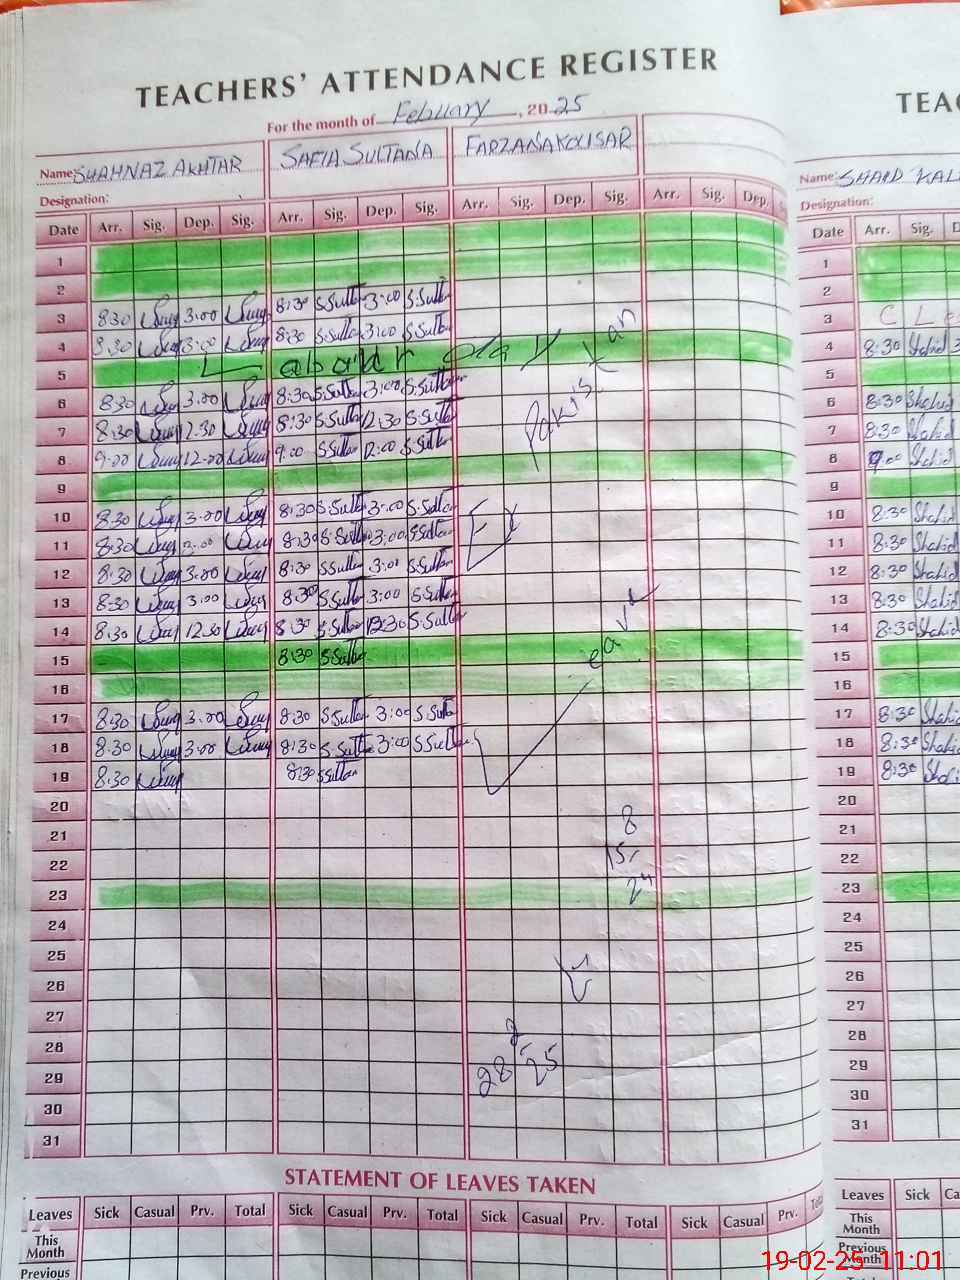 TEACHERS' ATTENDANCE REGISTER
For the month of February, 2025
Name: SHAHNAZ AKHTAR SAFIA SULTANA FARZANA KOUSAR
Designation:
Date Arr. Sig. Dep. Sig. Arr. Sig. Dep. Sig. Arr. Sig. Dep. Sig. Arr. Sig. Dep.
1
2
3 8:30 3:00 8:30 S.Sultan 3:00 S.Sultan
4 8:30 3:00 8:30 S.Sultan 3:00 S.Sultan
5
6 8:30 3:00 8:30 S.Sultan 3:00 S.Sultan
7 8:30 12:30 8:30 S.Sultan 12:30 S.Sultan
8 9:00 12:00 9:00 S.Sultan 12:00 S.Sultan
9
10 8:30 3:00 8:30 S.Sultan 3:00 S.Sultan
11 8:30 3:00 8:30 S.Sultan 3:00 S.Sultan
12 8:30 3:00 8:30 S.Sultan 3:00 S.Sultan
13 8:30 3:00 8:30 S.Sultan 3:00 S.Sultan
14 8:30 12:30 8:30 S.Sultan 12:30 S.Sultan
15 8:30 S.Sultan
16
17 8:30 3:00 8:30 S.Sultan 3:00 S.Sultan
18 8:30 3:00 8:30 S.Sultan 3:00 S.Sultan
19 8:30 8:30 S.Sultan
20
21
22
23
24
25
26
27
28
29
30
31
Ex Pakistan Leave
8
15
24
28 2 25
STATEMENT OF LEAVES TAKEN
Leaves Sick Casual Prv. Total Sick Casual Prv. Total Sick Casual Prv. Total Sick Casual Prv.
This Month
Previous
TEAC
Name: SHAID KAL
Designation:
Date Arr. Sig.
1
2
3 C L
4 8:30 Shahid
5
6 8:30 Shahid
7 8:30 Shahid
8 9:00 Shahid
9
10 8:30 Shahid
11 8:30 Shahid
12 8:30 Shahid
13 8:30 Shahid
14 8:30 Shahid
15
16
17 8:30 Shahid
18 8:30 Shahid
19 8:30 Shahid
20
21
22
23
24
25
26
27
28
29
30
31
Leaves Sick Ca
This Month
Previous Month
19-02-25 11:01